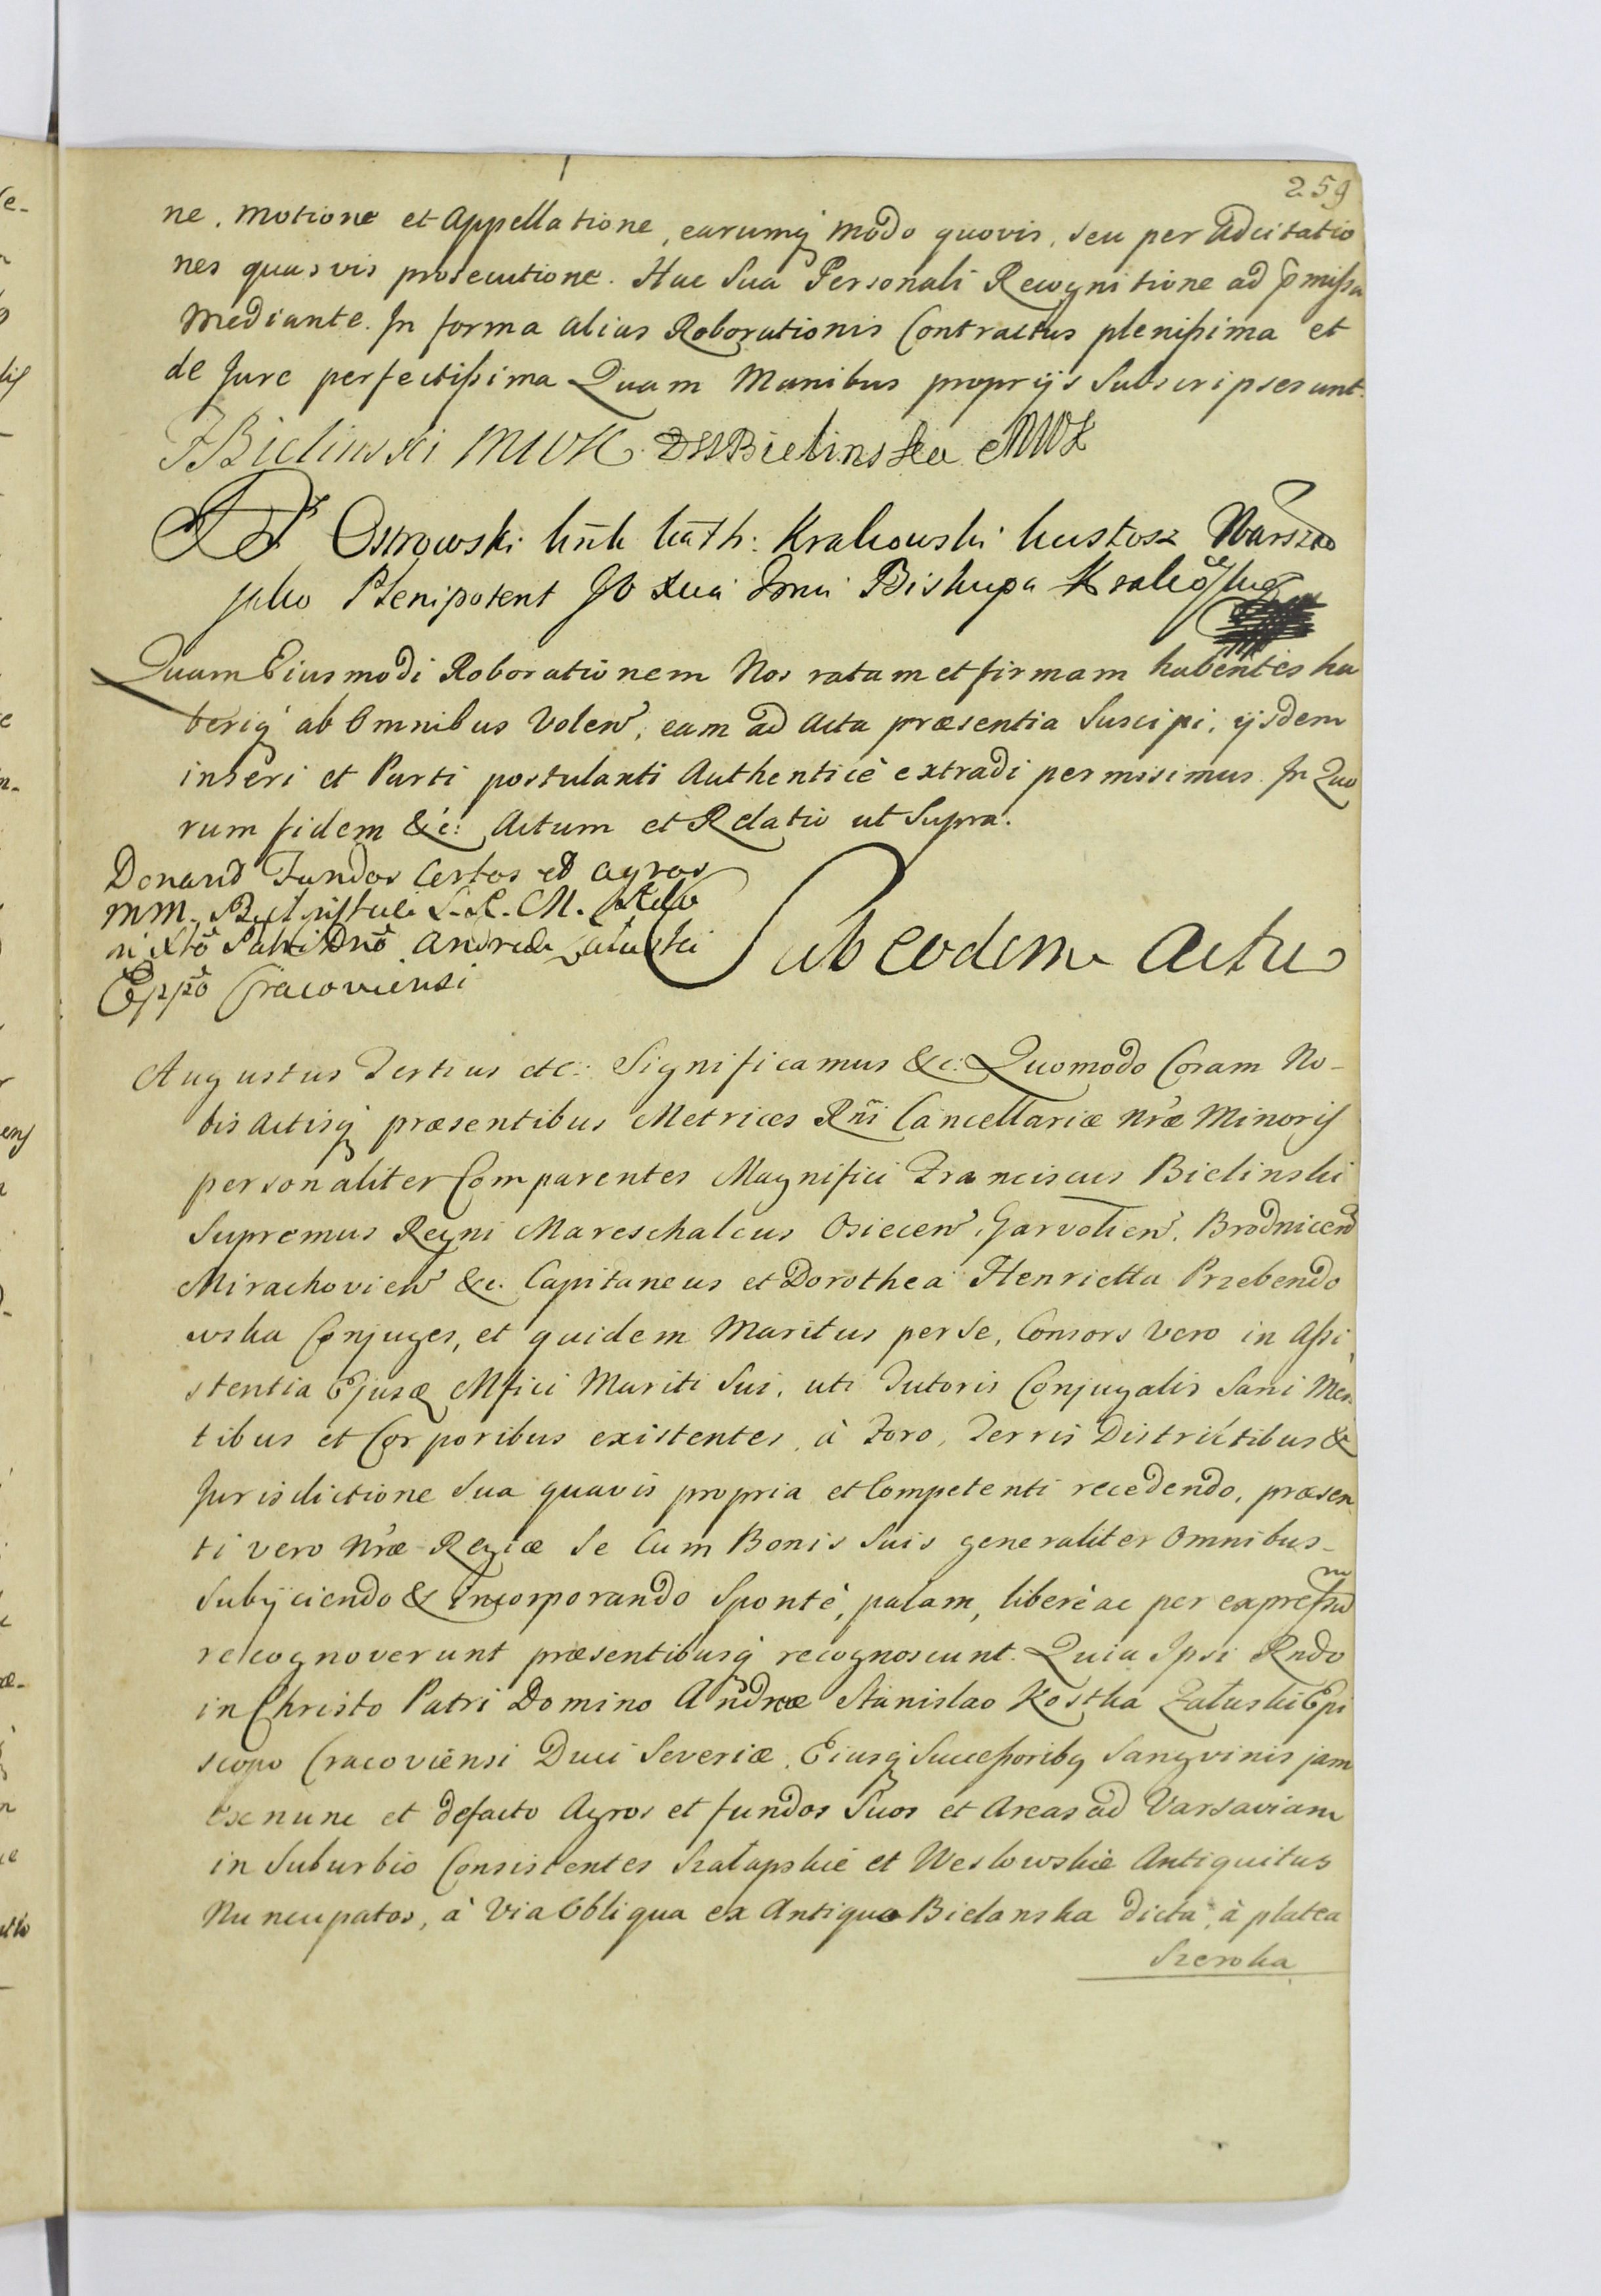 259
ne, motione et Appellatione, earumq modo quovis, seu per adcitatio
nes quasvis prosecutione. Hac Sua Personali Recognitione ad p̃missa
Mediante. In forma alias Roborationis Contractus plenissima et
de Jure perfectissima Quam Manibus proprijs Subscripserunt.
FBielinski MWK DHBielinska MWK
Ostrowski kath: Krakowski kustosz Warszaw
jako Plenipotent Biskupa
Quam Eiusmodi Roborationem Nos ratam et firmam habentes ha
beriq ab Omnibus Volen, eam ad Acta præsentia Suscipi, ijsdem
inseri et Parti postulanti Authenticè extradi permisimus. In Quo
rum fidem &c: Actum et Relatio ut Supra.
Fundos Certos et agros
MM.
Patri Dnõ Andreæ Załuski
Eppõ Cracoviensi
Sub eodem Actu
Augustus Tertius etc: Significamus &c: Quomodo Coram No-
bis Actisq præsentibus Metrices Rñi Cancellariæ Nræ Minoris
personaliter Comparentes Magnifici Franciscus Bielinski
Supremus Regni Mareschalcus Osiecen, Garvolien, Brodnicen
Mirachovien &c. Capitaneus et Dorothea Henrietta Przebendo
wska Conjuges, et quidem Maritus per se, Consors vero in Assi
stentia Ejusq Mfici Mariti Sui, uti Tutoris Conjugalis Sani Men
tibus et Corporibus existentes, à Foro, Terris Districtibus &
Jurisdictione Sua quavis propria et Competenti recedendo, præsen
ti vero Nræ Regiæ Se Cum Bonis Suis generaliter Omnibus-
Subijciendo & Incorporando Spontè, palam, liberè ac per expressum
recognoverunt præsentibusq recognoscunt. Quia Ipsi Rndo
in Christo Patri Domino Andræ Stanislao Kostka Załuski Epi
scopo Cracoviensi Duci Severiæ, Eiusq Successoribq Sangvinis jam
ex nunc et defacto Agros et fundos Suos et Areas ad Varsaviam
in Suburbio Consistentes Szałapskie et Weslowskie Antiquitus
Nuncupatos, à Via Obliqua ex Antiquo Bielanska dicta, à platea
Szeroka